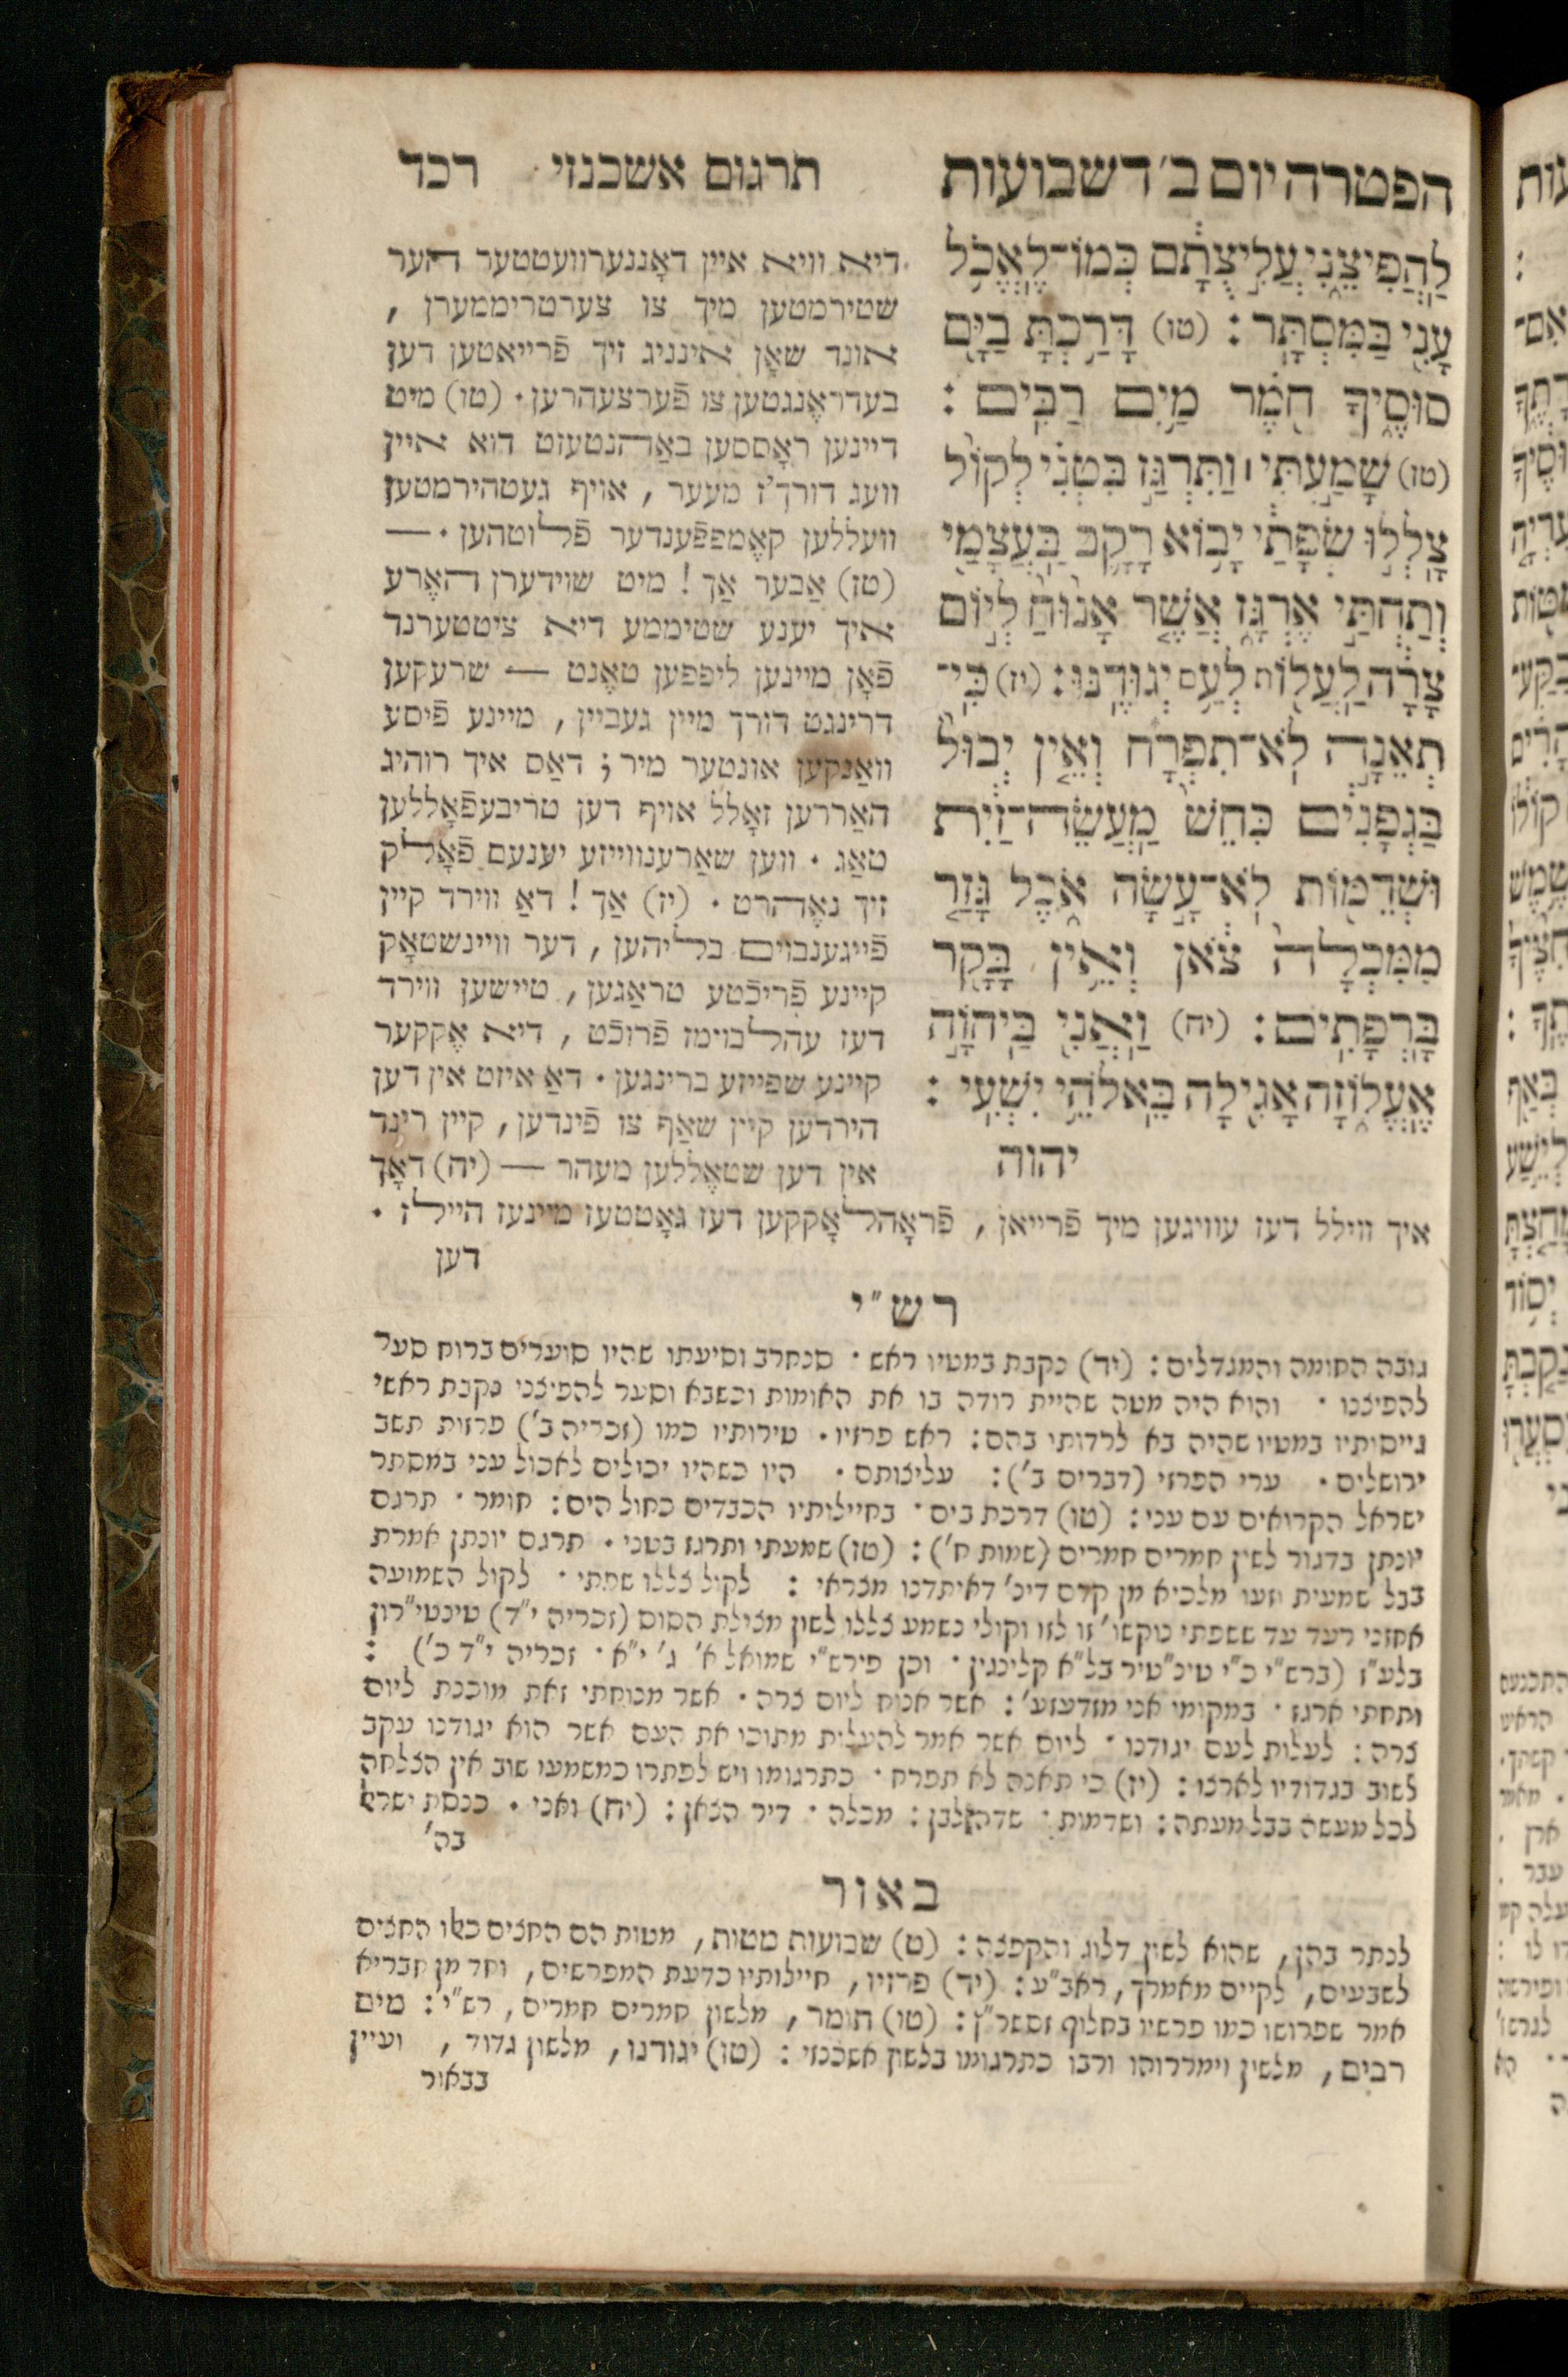 הפטרה יום ב׳ דשבועות
לַהֲפִיצֵנִי עֲלִיצֻתָם כְּמוֹ־לֶאֱכֹל
עָנִי בַּמִּסְתָּר : (טו) דָּרַכְתָּ בַיָּם
סוּסֶיךָ חֹמֶר מַיִם רַבִּים :
(טז) שָׁמַעְתִּי ׀ וַתִּרְגַּז בִּטְנִי לְקוֹל
צָלֲלוּ שְׂפָתַי יָבוֹא רָקָב בַּעֲצָמַי
וְתַחְתַּי אֶרְגָּז אֲשֶׁר אָנוּחַ לְיוֹם
צָרָה לַעֲלוֹת לְעַם יְגוּדֶנּוּ : (יז) כִּי־
תְאֵנָה לֹא־תִפְרָח וְאֵין יְבוּל
בַּגְּפָנִים כִּחֵשׁ מַעֲשֵׂה־זַיִת
וּשְׁדֵמוֹת לֹא־עָשָׂה אֹכֶל גָּזַר
מִמִּכְלָה צֹאן וְאֵין בָּקָר
בָּרְפָתִים : (יח) וַאֲנִי בַּיהוָֹה
אֶעֱלוֹזָה אָגִילָה בֵּאלֹהֵי יִשְׁעִי :
יהוה
תרגום אשכנזי רכד
דיא וויא איין דאָננערוועטטער העֶר
שטירמטען מיך צו צערטריממערן ,
אונד שאָן אינניג זיך פֿרייאטען דען
בעדראֶנגטען צו פֿערצעהרען . (טו) מיט
דיינען ראָססען באַהנטעזט דוא איין
וועג דורך׳ז מעער , אויף געטהירמטען
וועללען קאֶמפפֿענדער פֿלוטהען . —
(טז) אַבער אַך ! מיט שוידערן האֶרע
איך יענע שטיממע דיא ציטטערנד
פֿאָן מיינען ליפפען טאֶנט — שרעקען
דרינגט דורך מיין געביין , מיינע פֿיסע
וואַנקען אונטער מיר ; דאַס איך רוהיג
האַררען זאָלל אויף דען טריבעפֿאָללען
טאַג . ווען שאַרענווייזע יענעם פֿאָלק
זיך נאֶהרט . (יז) אַך ! דאַ ווירד קיין
פֿייגענבוים בליהען , דער וויינשטאָק
קיינע פֿריכֿטע טראַגען , טיישען ווירד
דעז עהלבוימז פֿרוכֿט , דיא אֶקקער
קיינע שפייזע ברינגען . דאַ איזט אין דען
הירדען קיין שאַף צו פֿינדען , קיין רינד
אין דען שטאֶללען מעהר — (יח) דאָך
איך ווילל דעז עוויגען מיך פֿרייאן , פֿראָהלאָקקען דעז גאָטטעז מיינעז היילז .
דען
רש״י
גובה החומה והמגדלים : (יד) נקבת במטיו ראש . סנחרב וסיעתו שהיו סוערים ברוח סער
להפיצנו . והוא היה מטה שהיית רודה בו את האומות וכשבא וסער להפיצני נקבת ראשי
גייסותיו במטיו שהיה בא לרדותי בהם : ראש פרזיו . עירותיו כמו (זכריה ב׳) פרזות תשב
ירושלים . ערי הפרזי (דברים ב׳) : עליצותם . היו כשהיו יכולים לאכול עני במסתר
ישראל הקרואים עם עני : (טו) דרכת בים . בחיילותיו הכבדים כחול הים : חומר . תרגם
יונתן בדגור לשון חמרים חמרים (שמות ח׳) : (טז) שמעתי ותרגז בטני . תרגם יונתן אמרת
בבל שמעית וזעו מלכיא מן קדם דינ׳ דאיתדנו מצראי : לקול צללו שפתי . לקול השמועה
אחזני רעד עד ששפתי נוקשו׳ זו לזו וקולי נשמע צללו לשון מצילת הסוס (זכריה י״ד) טינטי״רון
בלע״ז (ברש״י כ״י טינ״טיר בל״א קלינגין . וכן פירש״י שמואל א׳ ג׳ י״א . זכריה י״ד כ׳) :
ותחתי ארגז . במקומי אני מזדעזע׳ : אשר אנוח ליום צרה . אשר מנוחתי זאת מוכנת ליום
צרה : לעלות לעם יגודנו . ליום אשר אמר להעלות מתוכו את העם אשר הוא יגודנו עקב
לשוב בגדודיו לארצו : (יז) כי תאנה לא תפרח . כתרגומו ויש לפתרו כמשמעו שוב אין הצלחה
לכל מעשה בבל מעתה : ושדמות . שדה לבן : מכלה . דיר הצאן : (יח) ואני . כנסת ישראל
בה׳
באור
לנתר בהן , שהוא לשון דלוג והקפצה : (ט) שבועות מטות , מטות הם החצים כאלו החצים
לשבעים , לקיים מאמרך , ראב״ע : (יד) פרזיו , חיילותיו כדעת המפרשים , וחד מן חבריא
אמר שפרושו כמו פרשיו בחלוף זסשר״ץ : (טו) חומר , מלשון חמרים חמרים , רש״י : מים
רבים , מלשון וימררוהו ורבו כתרגומו בלשון אשכנזי : (טז) יגודנו , מלשון גדוד , ועיין
בבאור